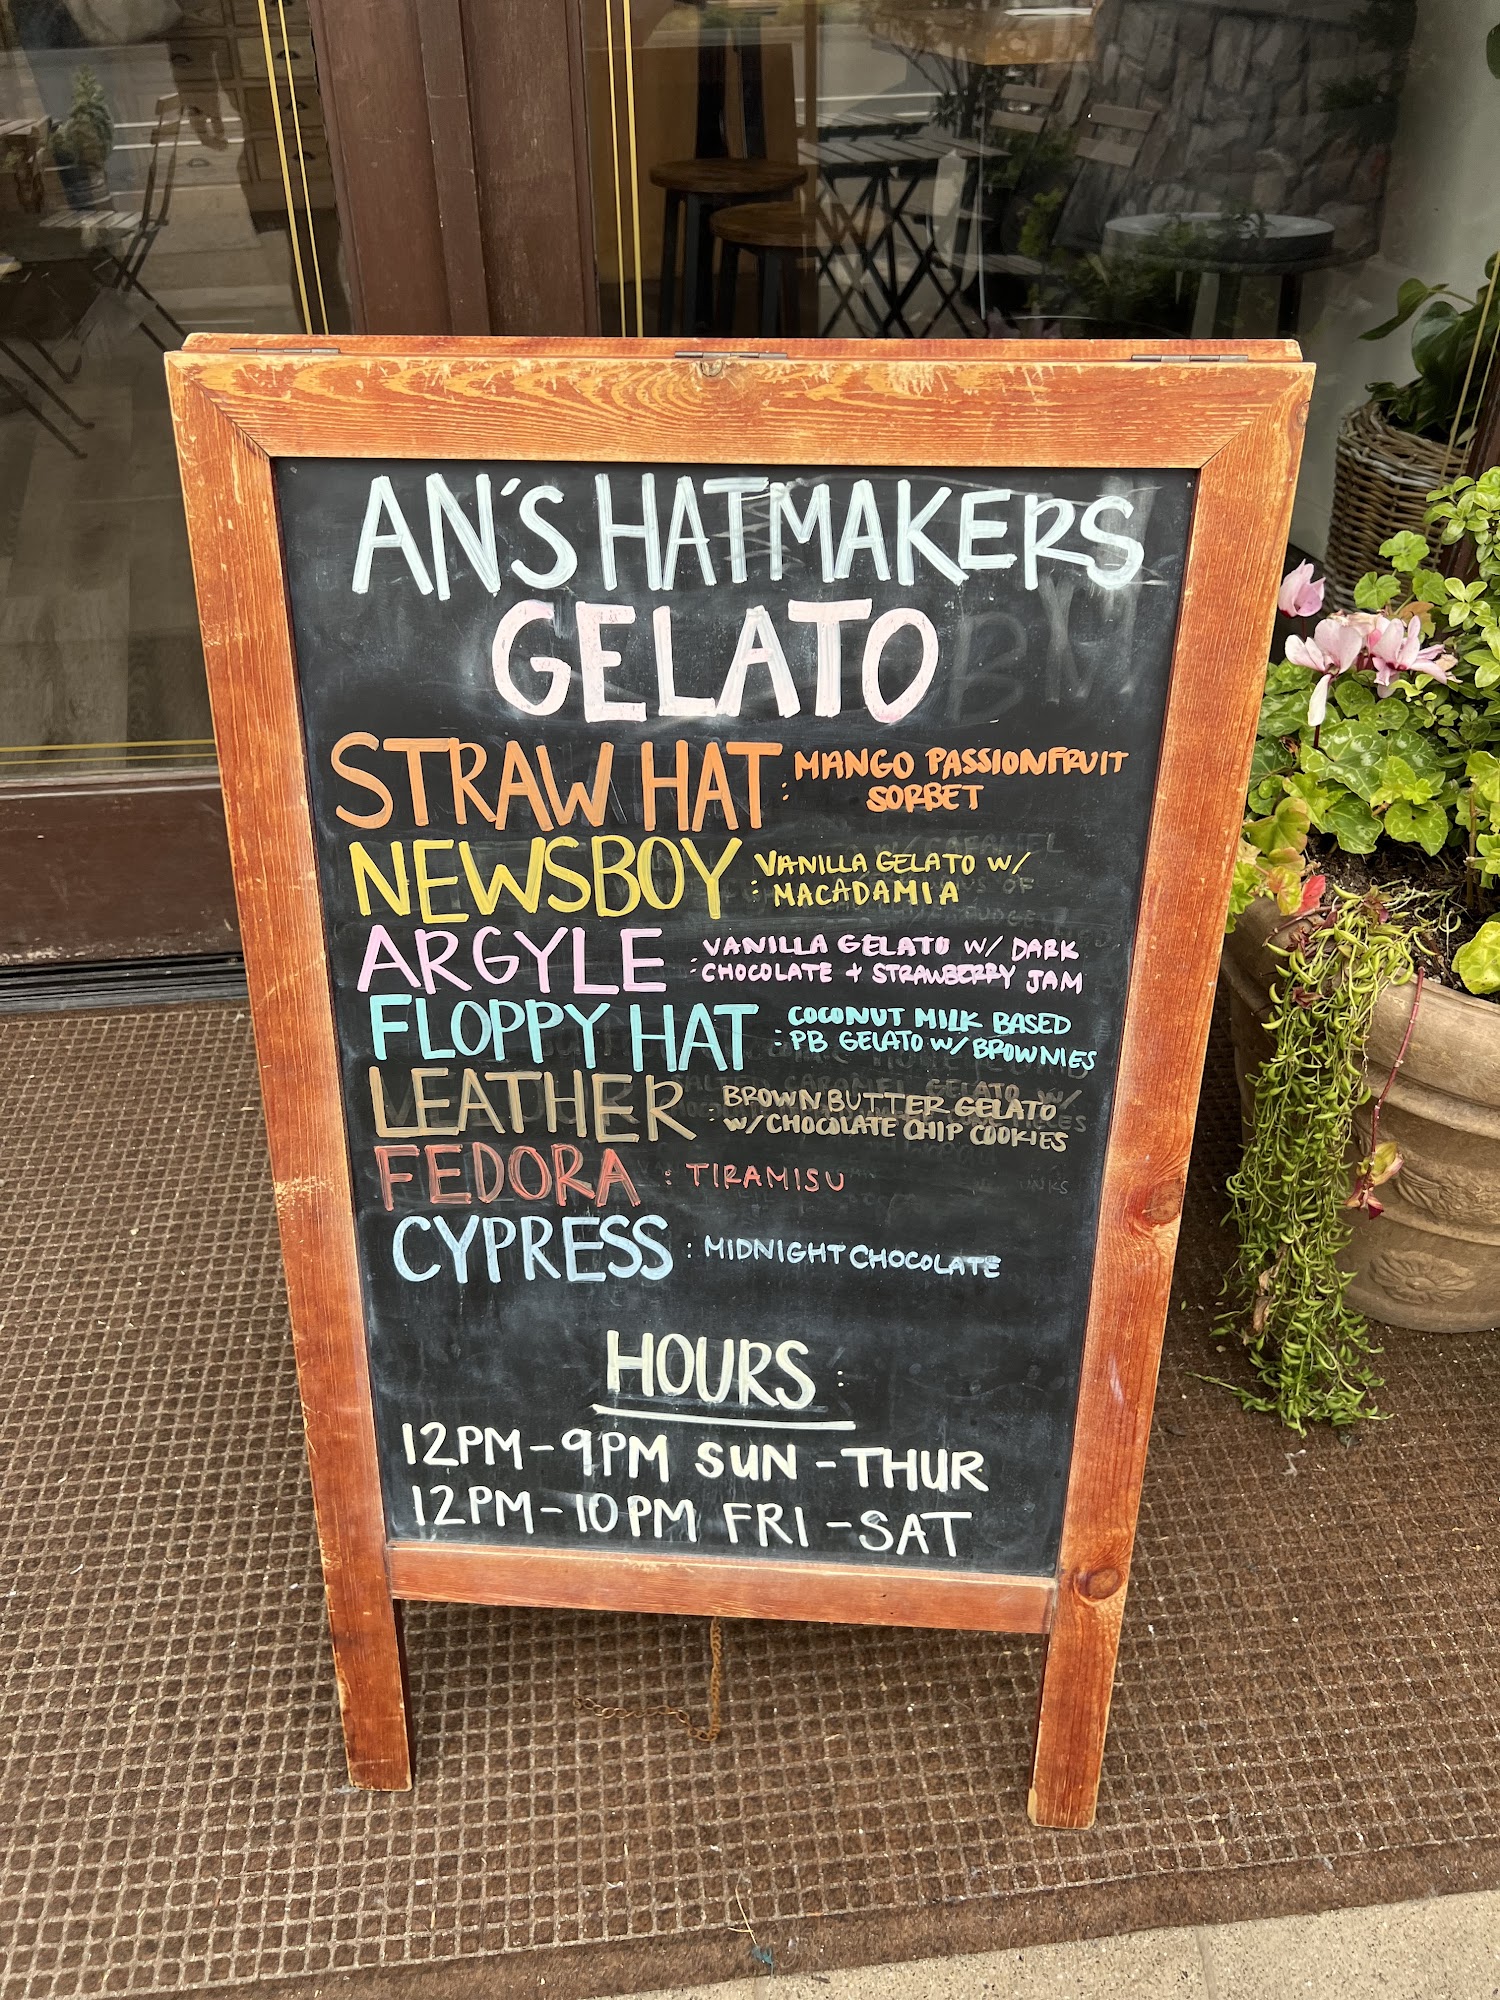 AN'S HATMAKERS
GELATO
STRAW HAT : MANGO PASSIONFRUIT
SORBET
NEWSBOY : VANILLA GELATO W/
MACADAMIA
ARGYLE : VANILLA GELATO W/ DARK
CHOCOLATE + STRAWBERRY JAM
FLOPPY HAT : COCONUT MILK BASED
PB GELATO W/ BROWNIES
LEATHER : BROWN BUTTER GELATO
W/ CHOCOLATE CHIP COOKIES
FEDORA : TIRAMISU
CYPRESS : MIDNIGHT CHOCOLATE
HOURS :
12PM-9PM SUN-THUR
12PM-10PM FRI-SAT